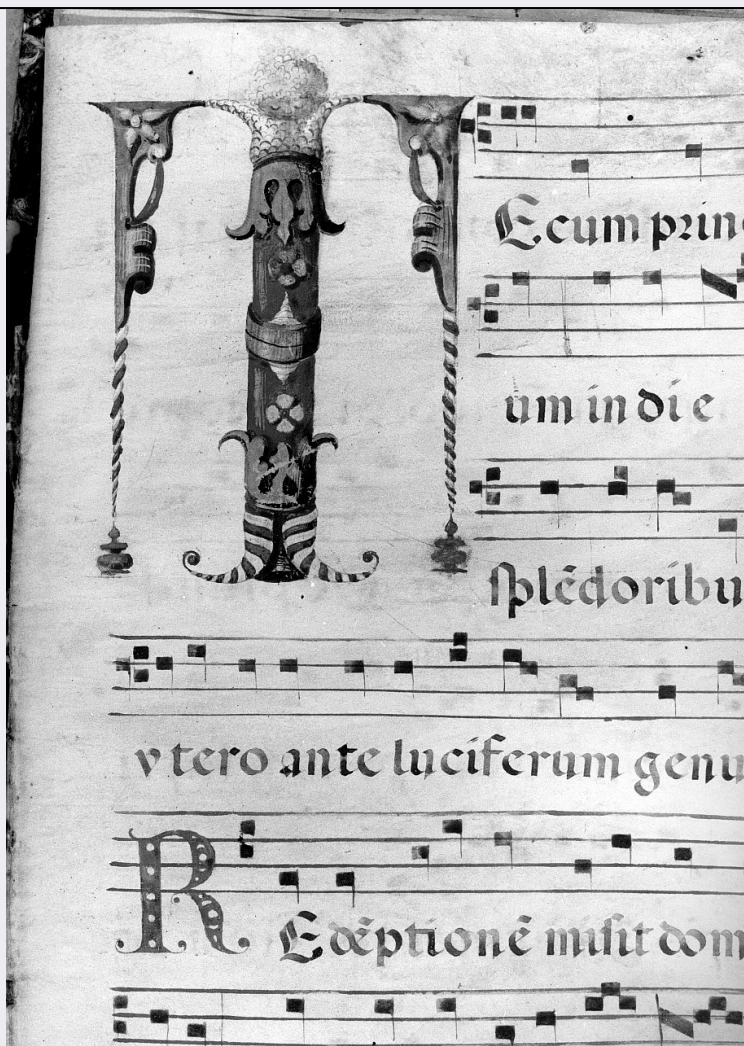 TEcum prin
um in die
ſplēdoribu
vtero ante luciferum genu
REdēptionē miſit dom